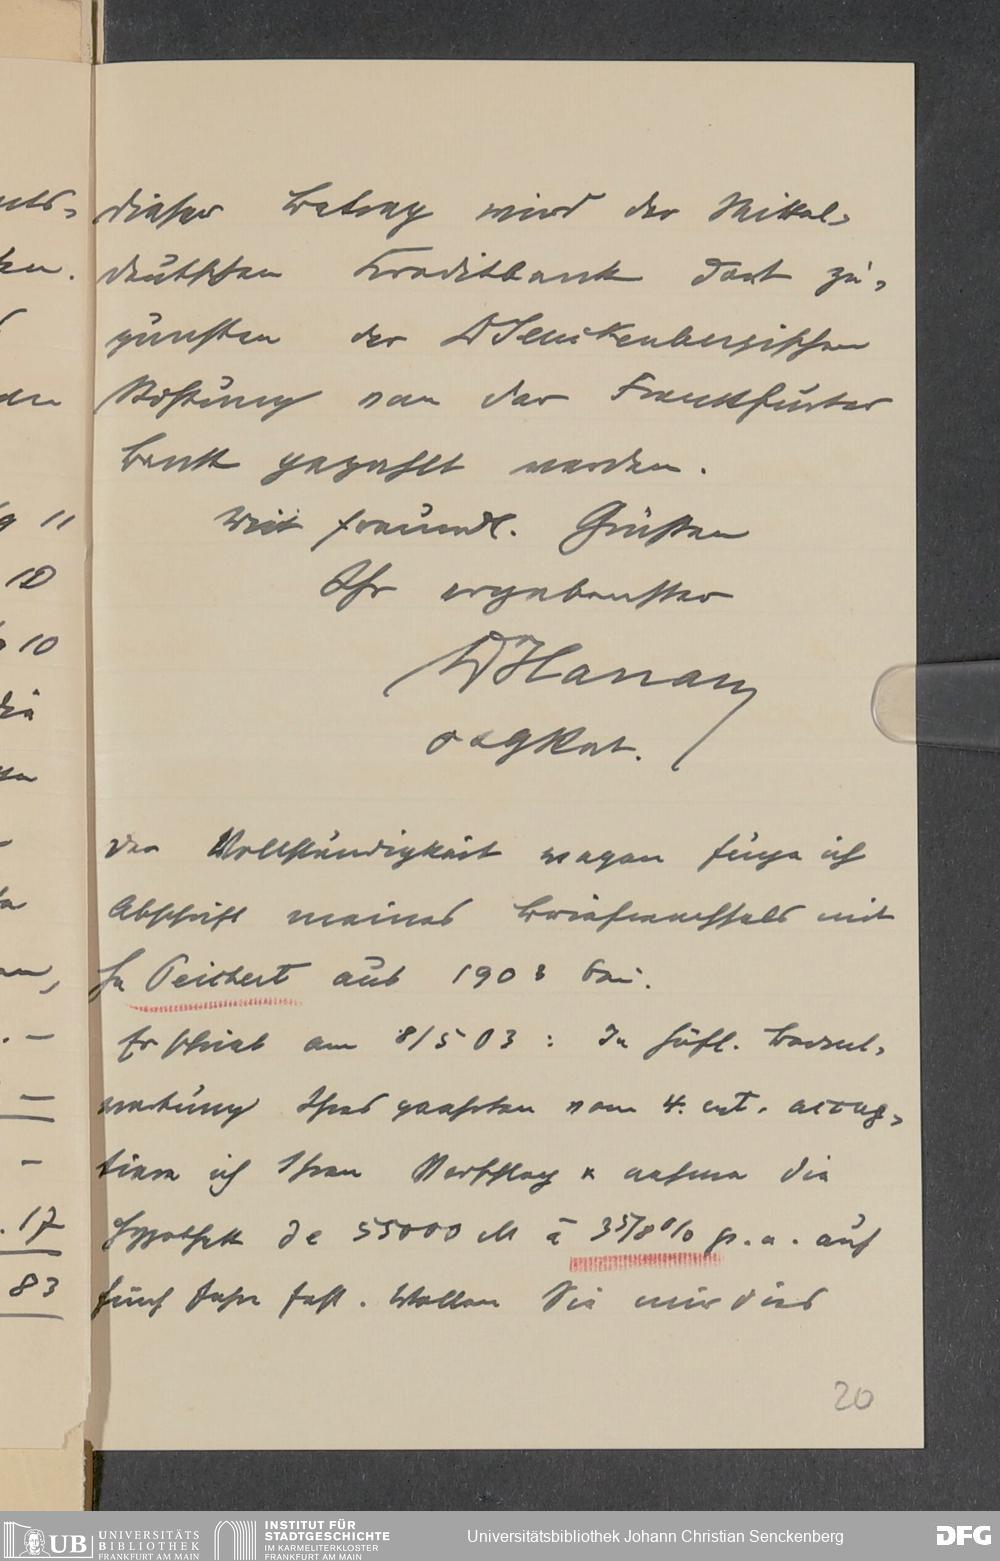 dieser Betrag wird der Mittel-
deutschen Kreditbank dort zu-
gunsten der D Senckenbergischen
Stiftung von der Frankfurter
Bank gezahlt werden.
Mit freundl. Grüßen
Ihr ergebenster
der Vollständigkeit wegen füge ich
Abschrift meines Briefwechsels mit
Teichert aus 1903 bei.
Er schrieb am 8/5 03: In höfl. Beant-
wortung Ihres geehrten vom 4. crt. accep-
tiere ich Ihren Vorschlag & nehme die
Hypothek de 55000 M à 3 5/8 % p.a. auf
fünf Jahre fest. Wollen Sie mir dies
20
11
10
10
die
17
83
UB UNIVERSITÄTS
BIBLIOTHEK
FRANKFURT AM MAIN
INSTITUT FÜR
STADTGESCHICHTE
IM KARMELITERKLOSTER
FRANKFURT AM MAIN
Universitätsbibliothek Johann Christian Senckenberg
DFG